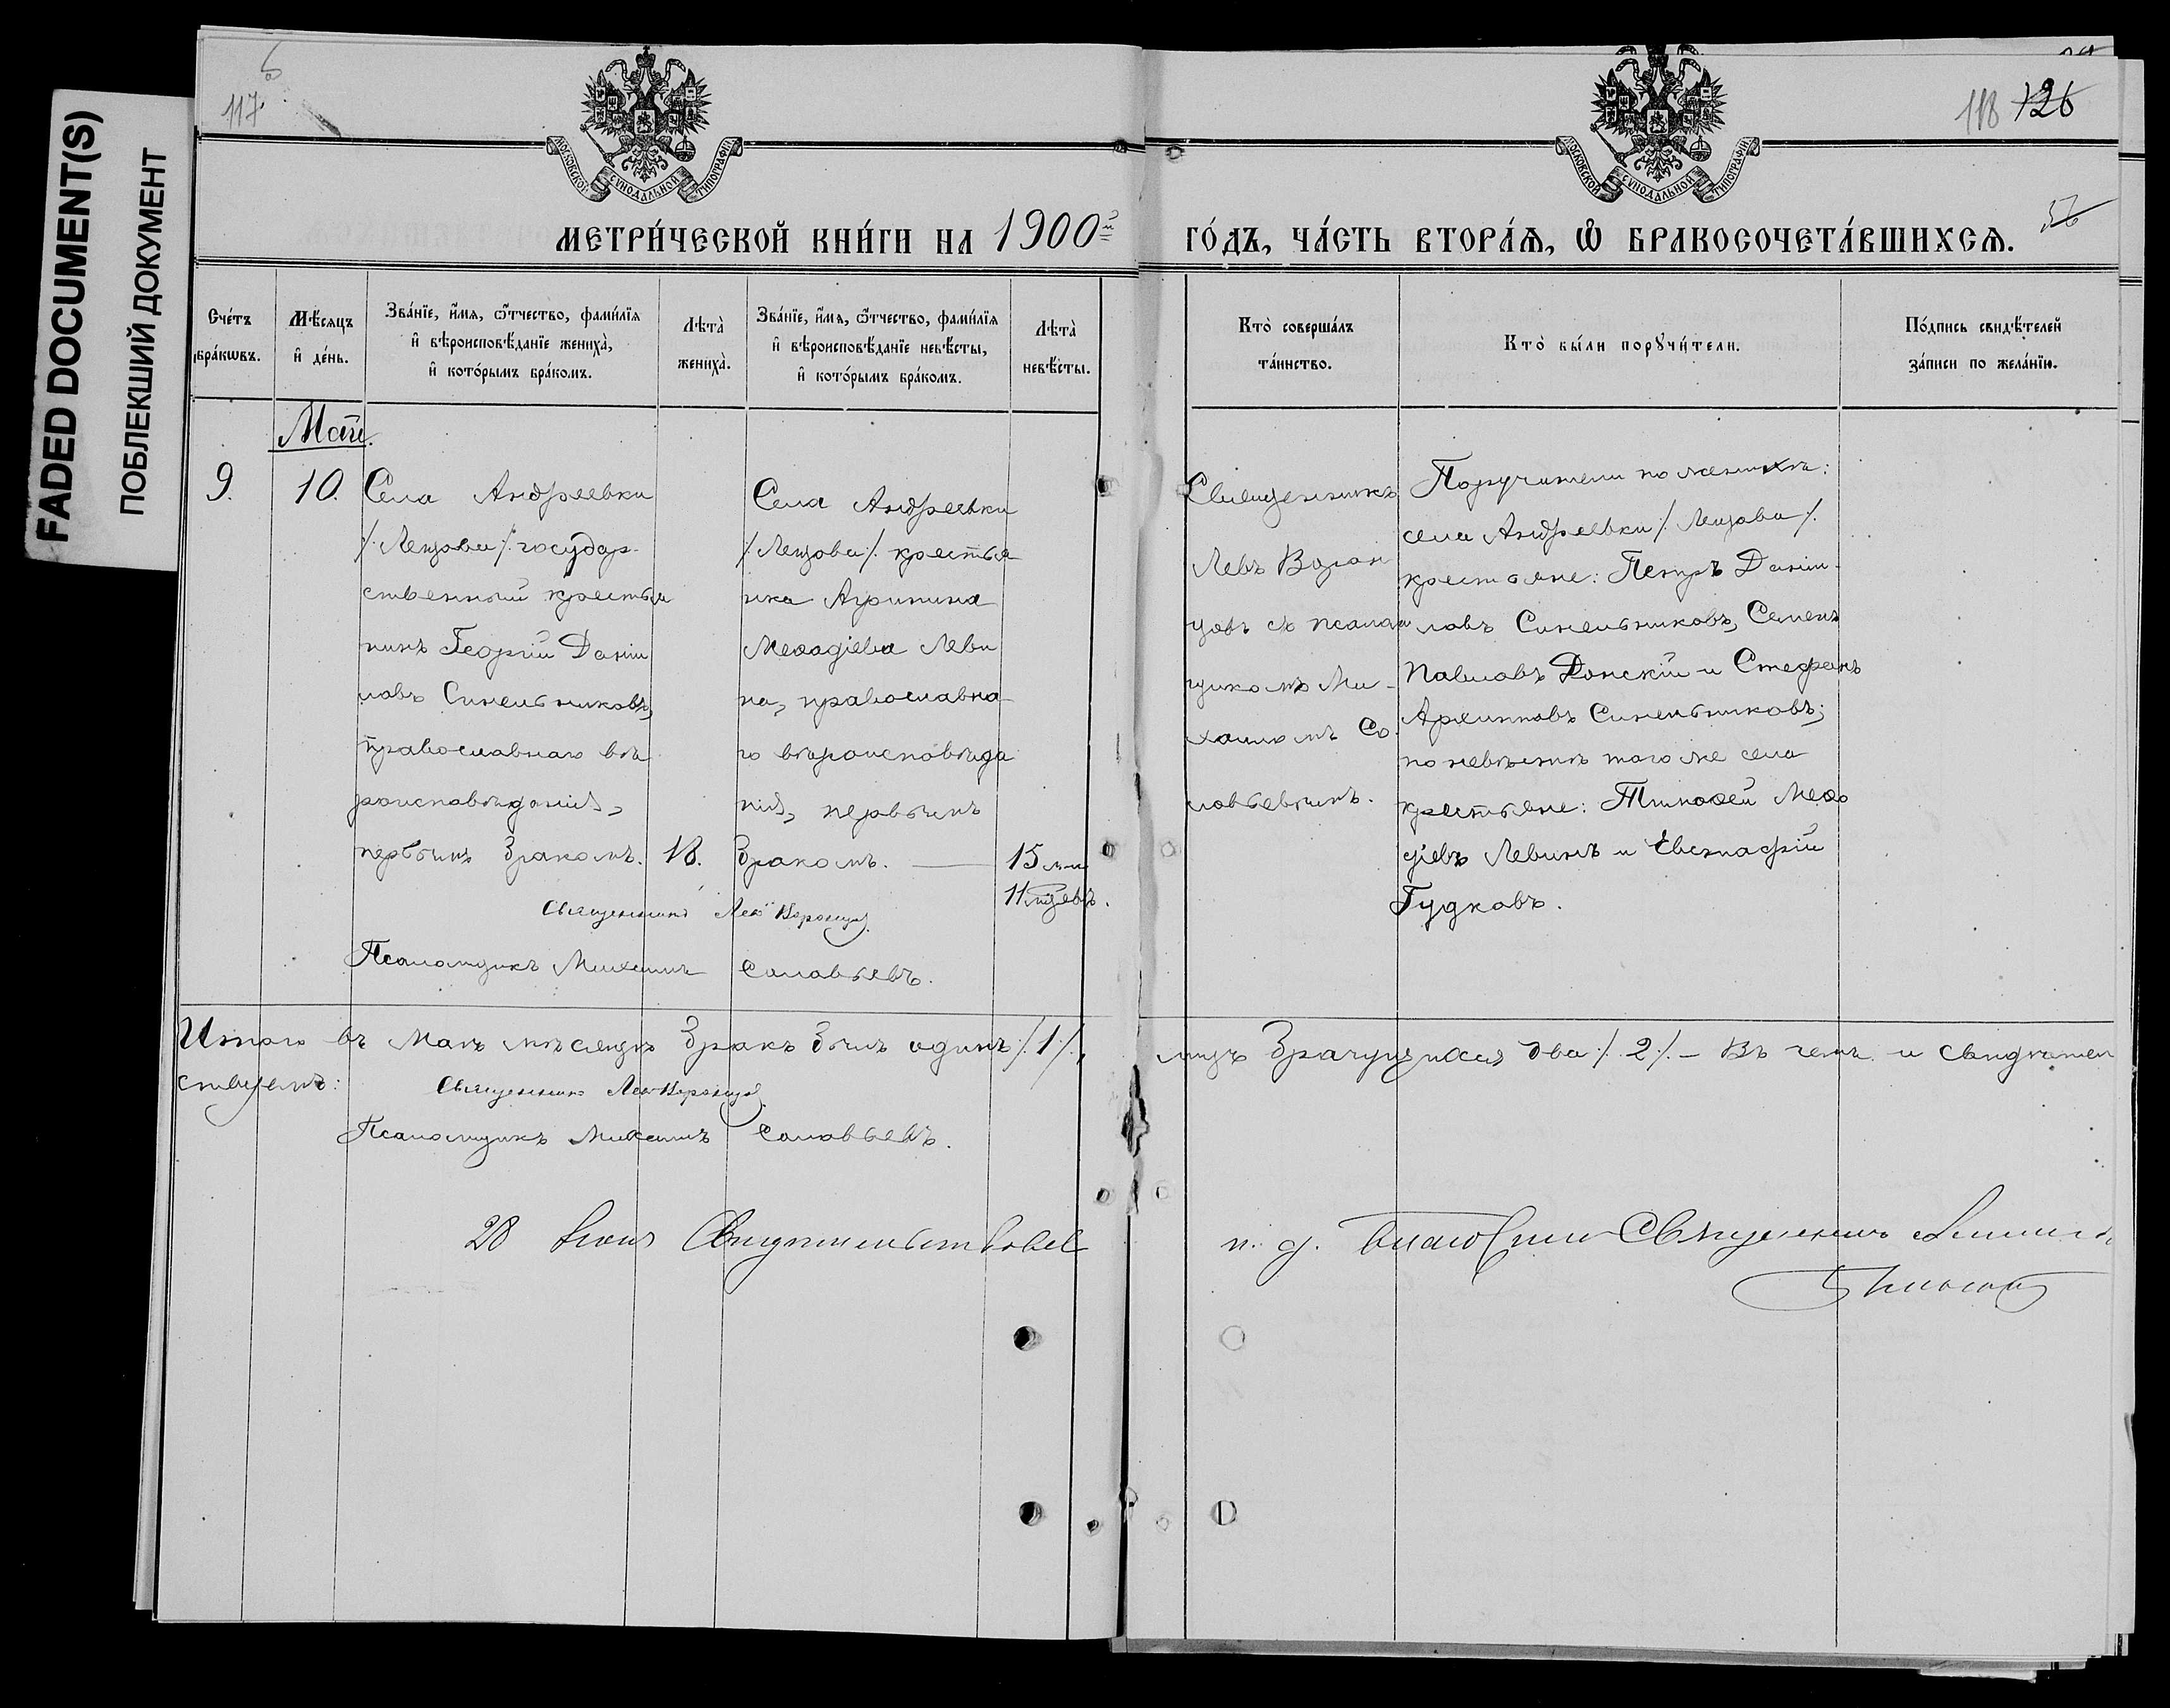 FADED DOCUMENT(S)
ПОБЛЕКШИЙ ДОКУМЕНТ
117.
118 126
56
МОСКОВСКОЙ СУНОДАЛЬНОЙ ТИПОГРАФІИ
МОСКОВСКОЙ СУНОДАЛЬНОЙ ТИПОГРАФІИ
МЕТРИ́ЧЕСКОЙ КНИ́ГИ НА 1900й ГО́ДЪ, ЧА́СТЬ ВТОРА́Ѧ, Ѽ БРАКОСОЧЕТА́ВШИХСѦ.
Сче́тъ
бра́кѡвъ.
Мѣ́сѧцъ
и҆ де́нь.
Зва́нїе, и҆́мѧ, ѻ҆́тчество, фами́лїѧ
и҆ вѣроисповѣ́данїе жениха̀,
и҆ кото́рымъ бра́комъ.
Лѣта̀
жениха̀.
Зва́нїе, и҆́мѧ, ѻ҆́тчество, фами́лїѧ
и҆ вѣроисповѣ́данїе невѣ́сты,
и҆ кото́рымъ бра́комъ.
Лѣта̀
невѣ́сты.
Кто̀ соверша́лъ
та́инство.
Кто̀ бы́ли порꙋчи́тели.
По́дпись свидѣ́телей
за́писи по жела́нїю.
Май.
9.
10.
Села Андреевки
/: Лещова /: государ-
ственный крестья
нинъ Георгій Даніи
ловъ Синельниковъ,
православнаго вѣ
роисповѣданія,
первымъ бракомъ.
18.
Села Андреевки
/: Лещова /: крестья
нка Агрипина
Меѳодіева Леви
на, православна
го вѣроисповѣда
нія, первымъ
бракомъ.
15 лѣтъ
11 мцевъ.
Священникъ
Левъ Ворон
цовъ съ псалом
щикомъ Ми-
хаиломъ Со-
ловьевымъ.
Поручители по женихѣ:
села Андреевки /: Лещова /:
крестьяне: Петръ Даніи-
ловъ Синельниковъ, Семенъ
Павловъ Донскій и Стефанъ
Архиповъ Синельниковъ;
по невѣстѣ того же села
крестьяне: Тимоѳей Меѳо
діевъ Левинъ и Евстафій
Гудковъ.
Священникъ Левъ Воронцовъ
Псаломщикъ Михаилъ Соловьевъ.
Итого въ Маѣ мѣсяцѣ бракъ былъ одинъ /: 1 /:, лицъ брачущихся два /: 2 /: – Въ чемъ и свидѣтель
ствуемъ:
Священникъ Левъ Воронцовъ
Псаломщикъ Михаилъ Соловьевъ.
28 Іюня Свидѣтельствовалъ и. д. Благочиннаго Священникъ